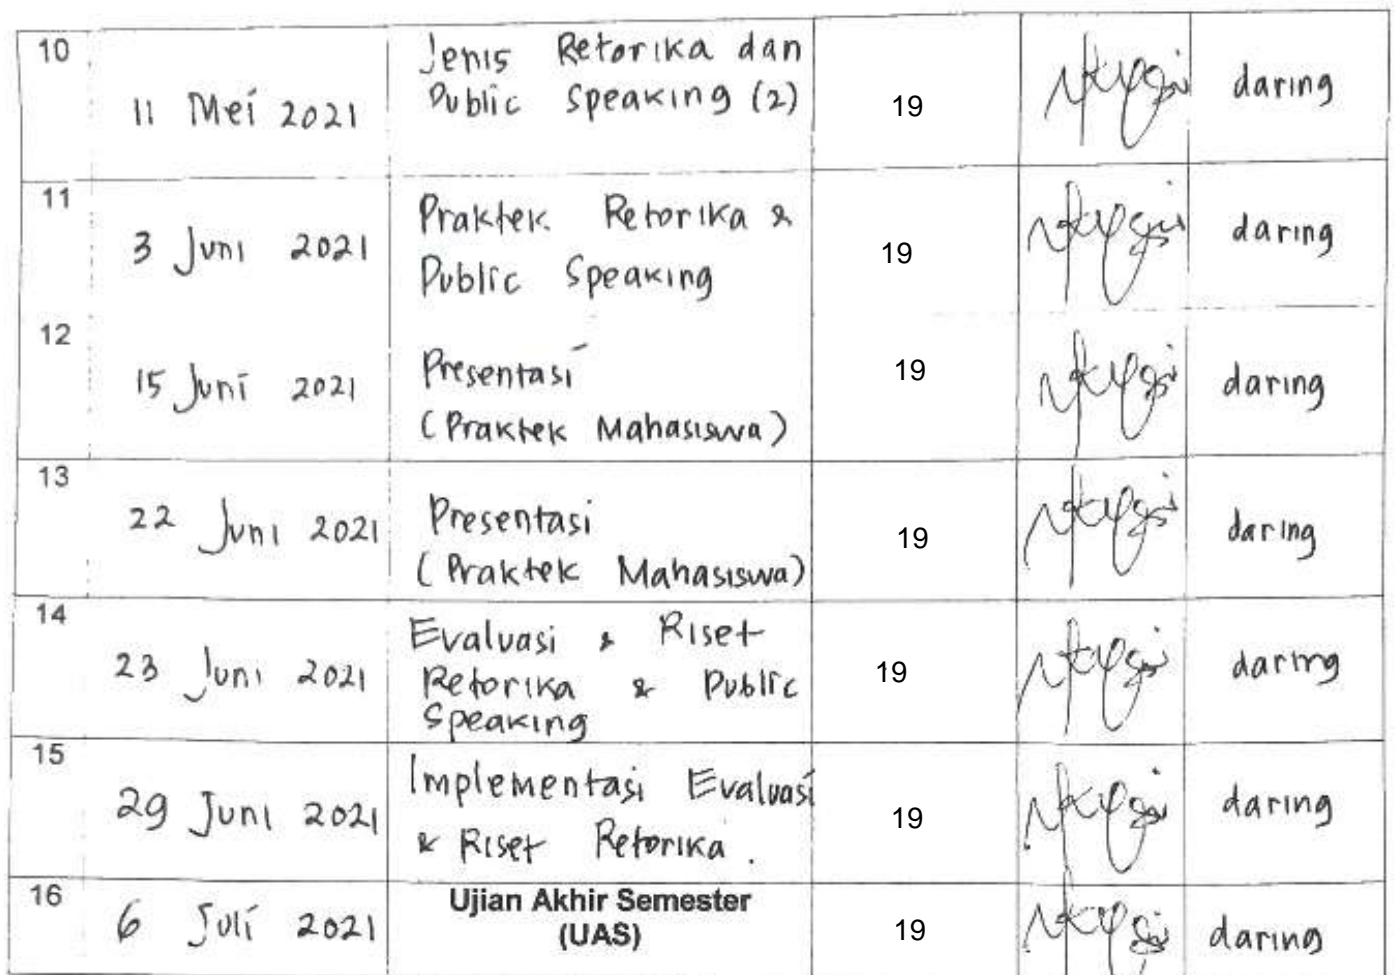 10
11 Mei 2021
Jenis Retorika dan
Public Speaking (2)
19
daring
11
3 Juni 2021
Praktek Retorika &
Public Speaking
19
daring
12
15 Juni 2021
Presentasi
(Praktek Mahasiswa)
19
daring
13
22 Juni 2021
Presentasi
(Praktek Mahasiswa)
19
daring
14
23 Juni 2021
Evaluasi & Riset
Retorika & Public
Speaking
19
daring
15
29 Juni 2021
Implementasi Evaluasi
& Riset Retorika.
19
daring
16
6 Juli 2021
Ujian Akhir Semester
(UAS)
19
daring